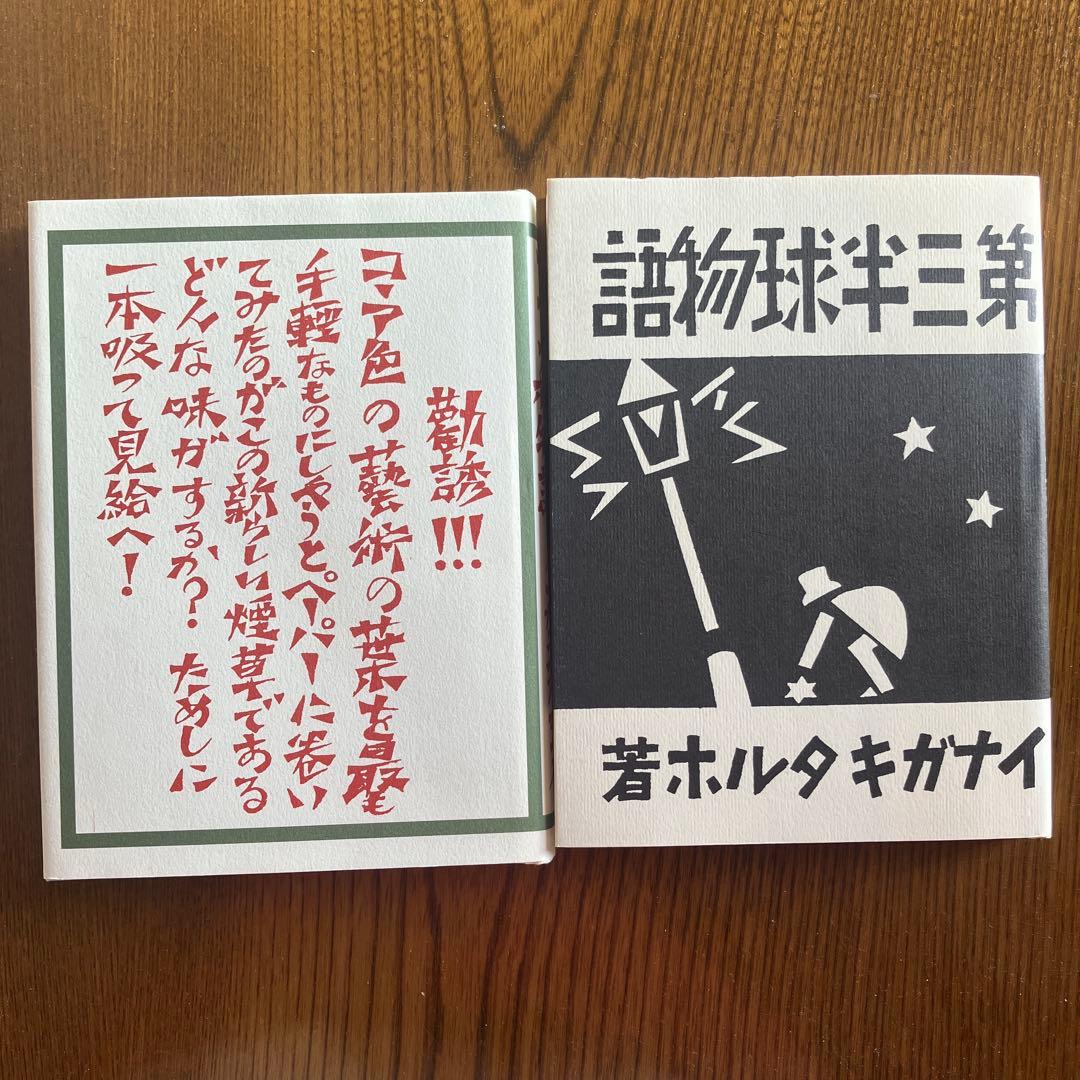 勸誘!!!
コヽア色の藝術の葉を最も
手輕なものにしやうとペーパーに卷い
てみたのがこの新らしい煙草である
どんな味がするか? ためしに
一本吸って見給へ!
第三半球物語
イナガキ タルホ著